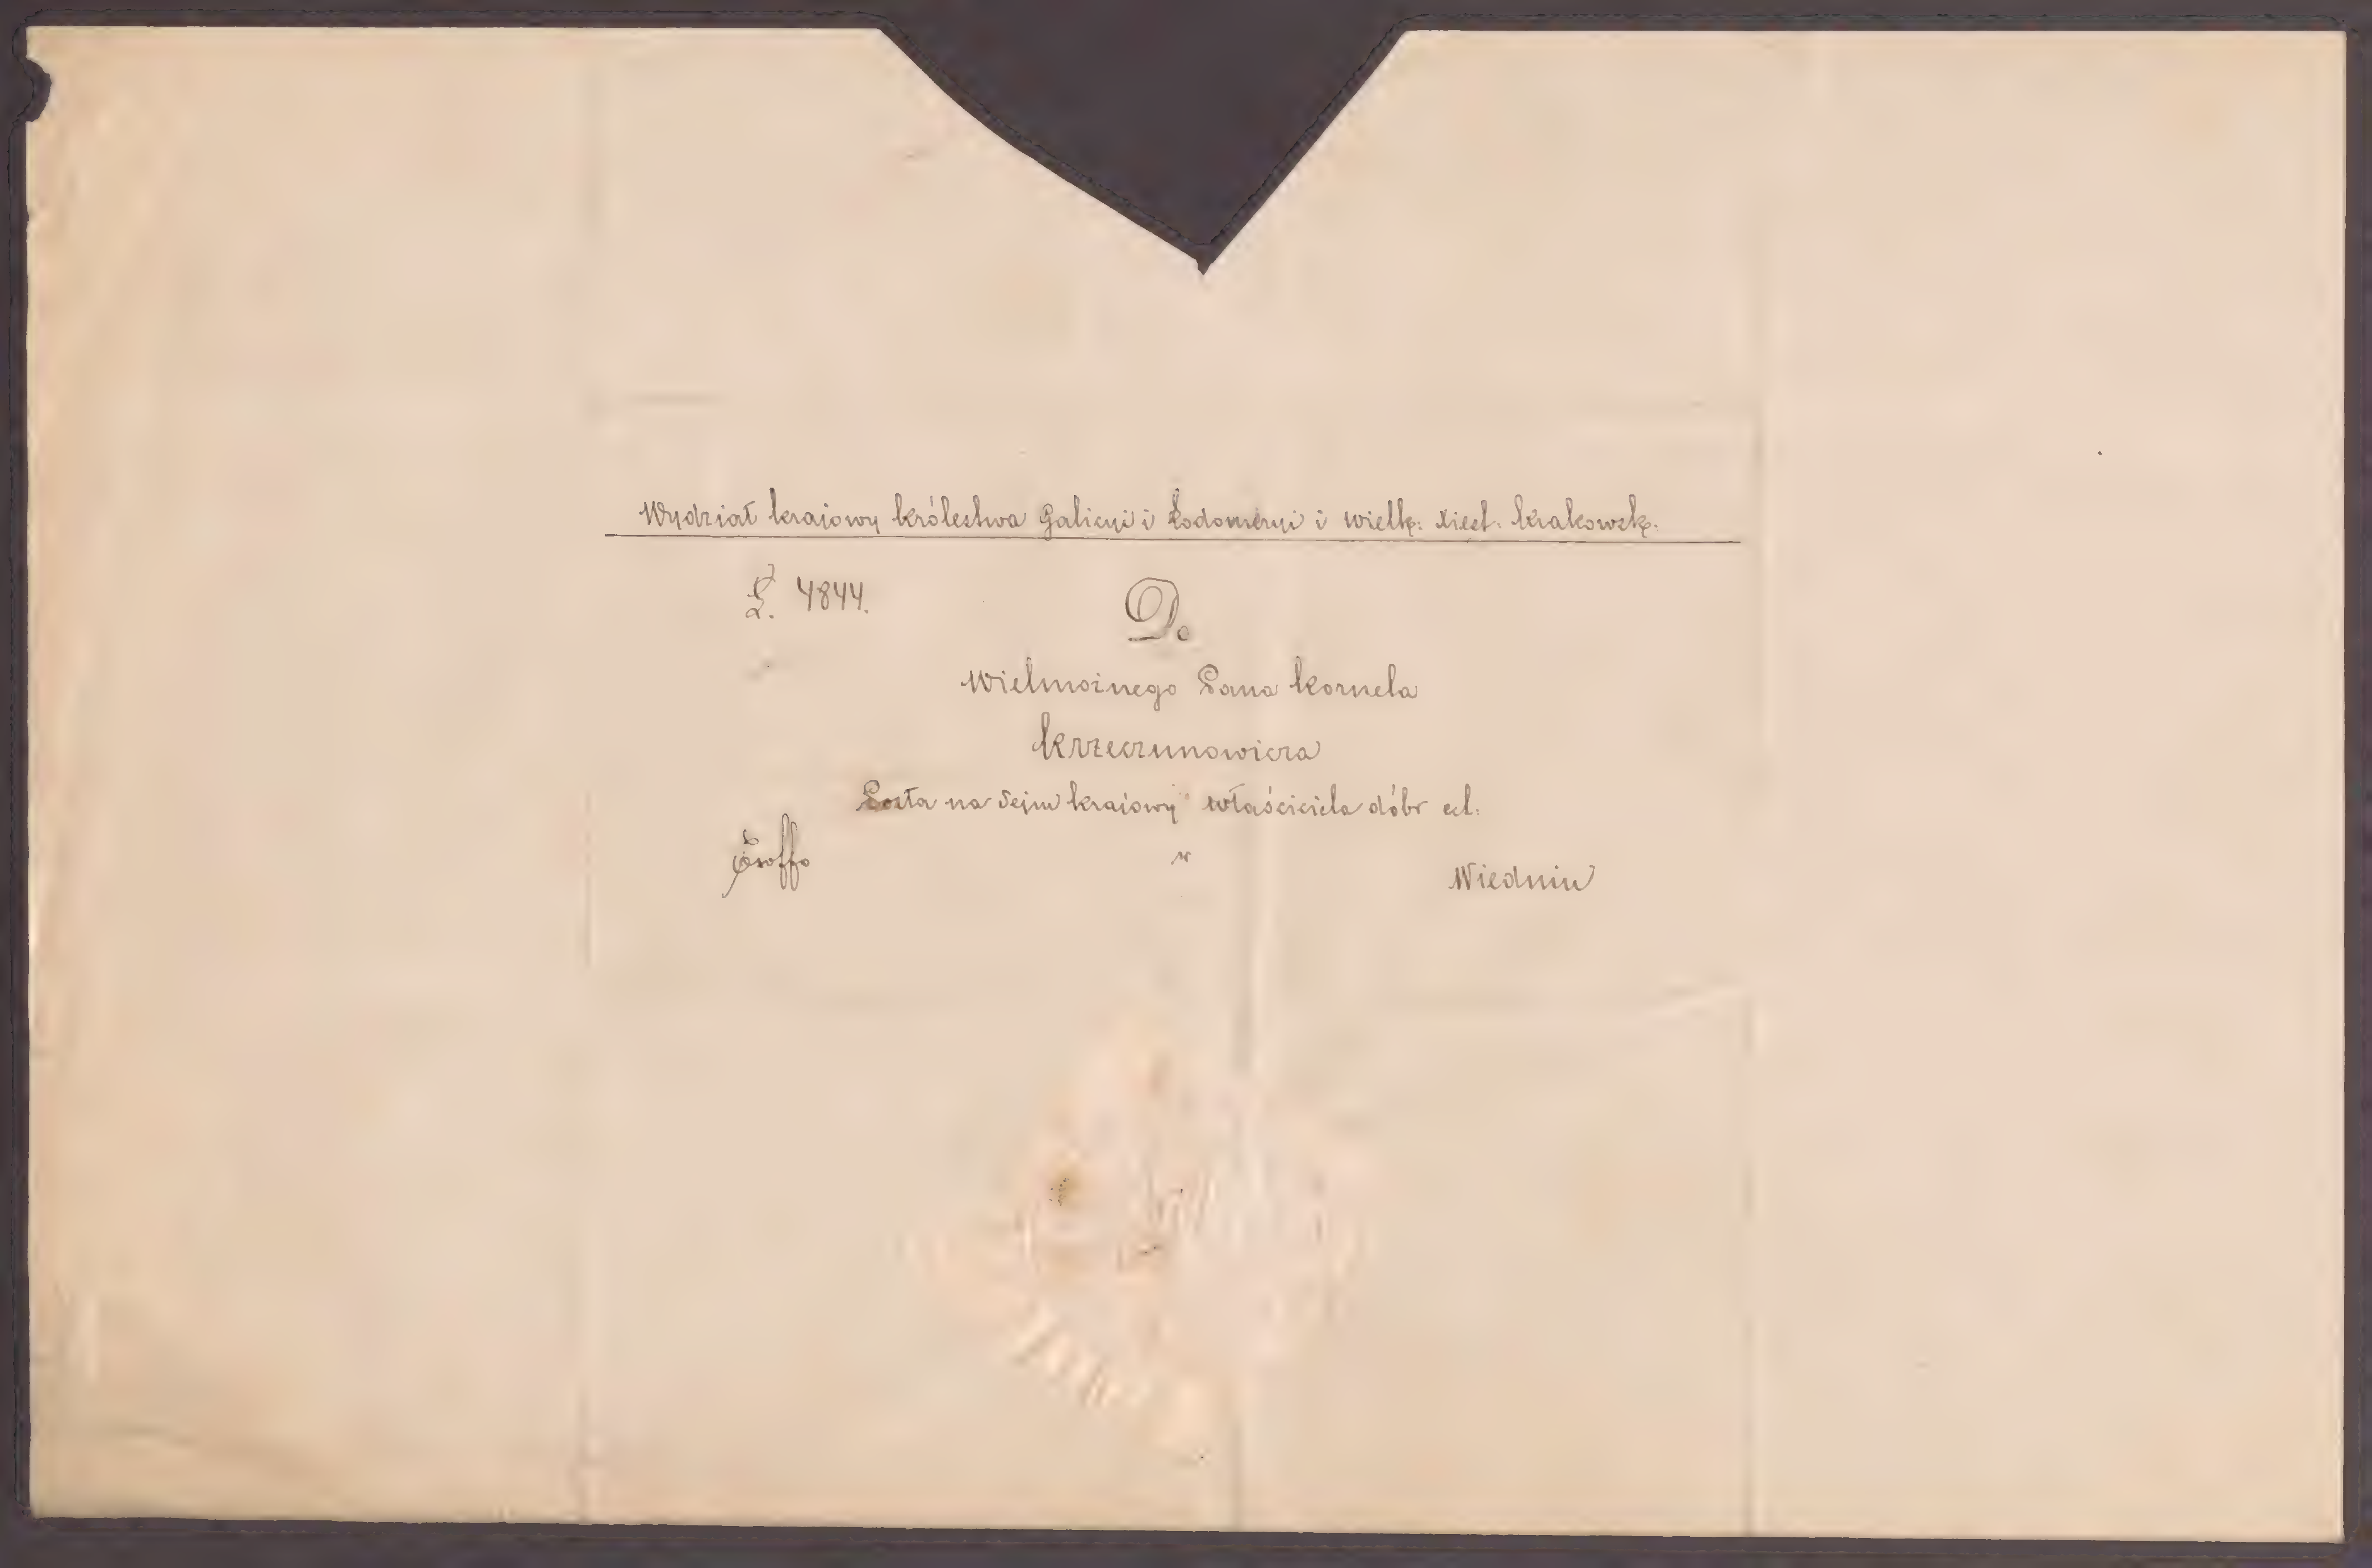 Wydział krajowy królestwa Galicyi i Lodomeryi i wielk: Xięst: krakowsk:
L. 4844.
Do
Wielmożnego Pana Kornela
Krzeczunowicza
Posła na Sejm krajowy właściciela dóbr etc.
w
Wiedniu